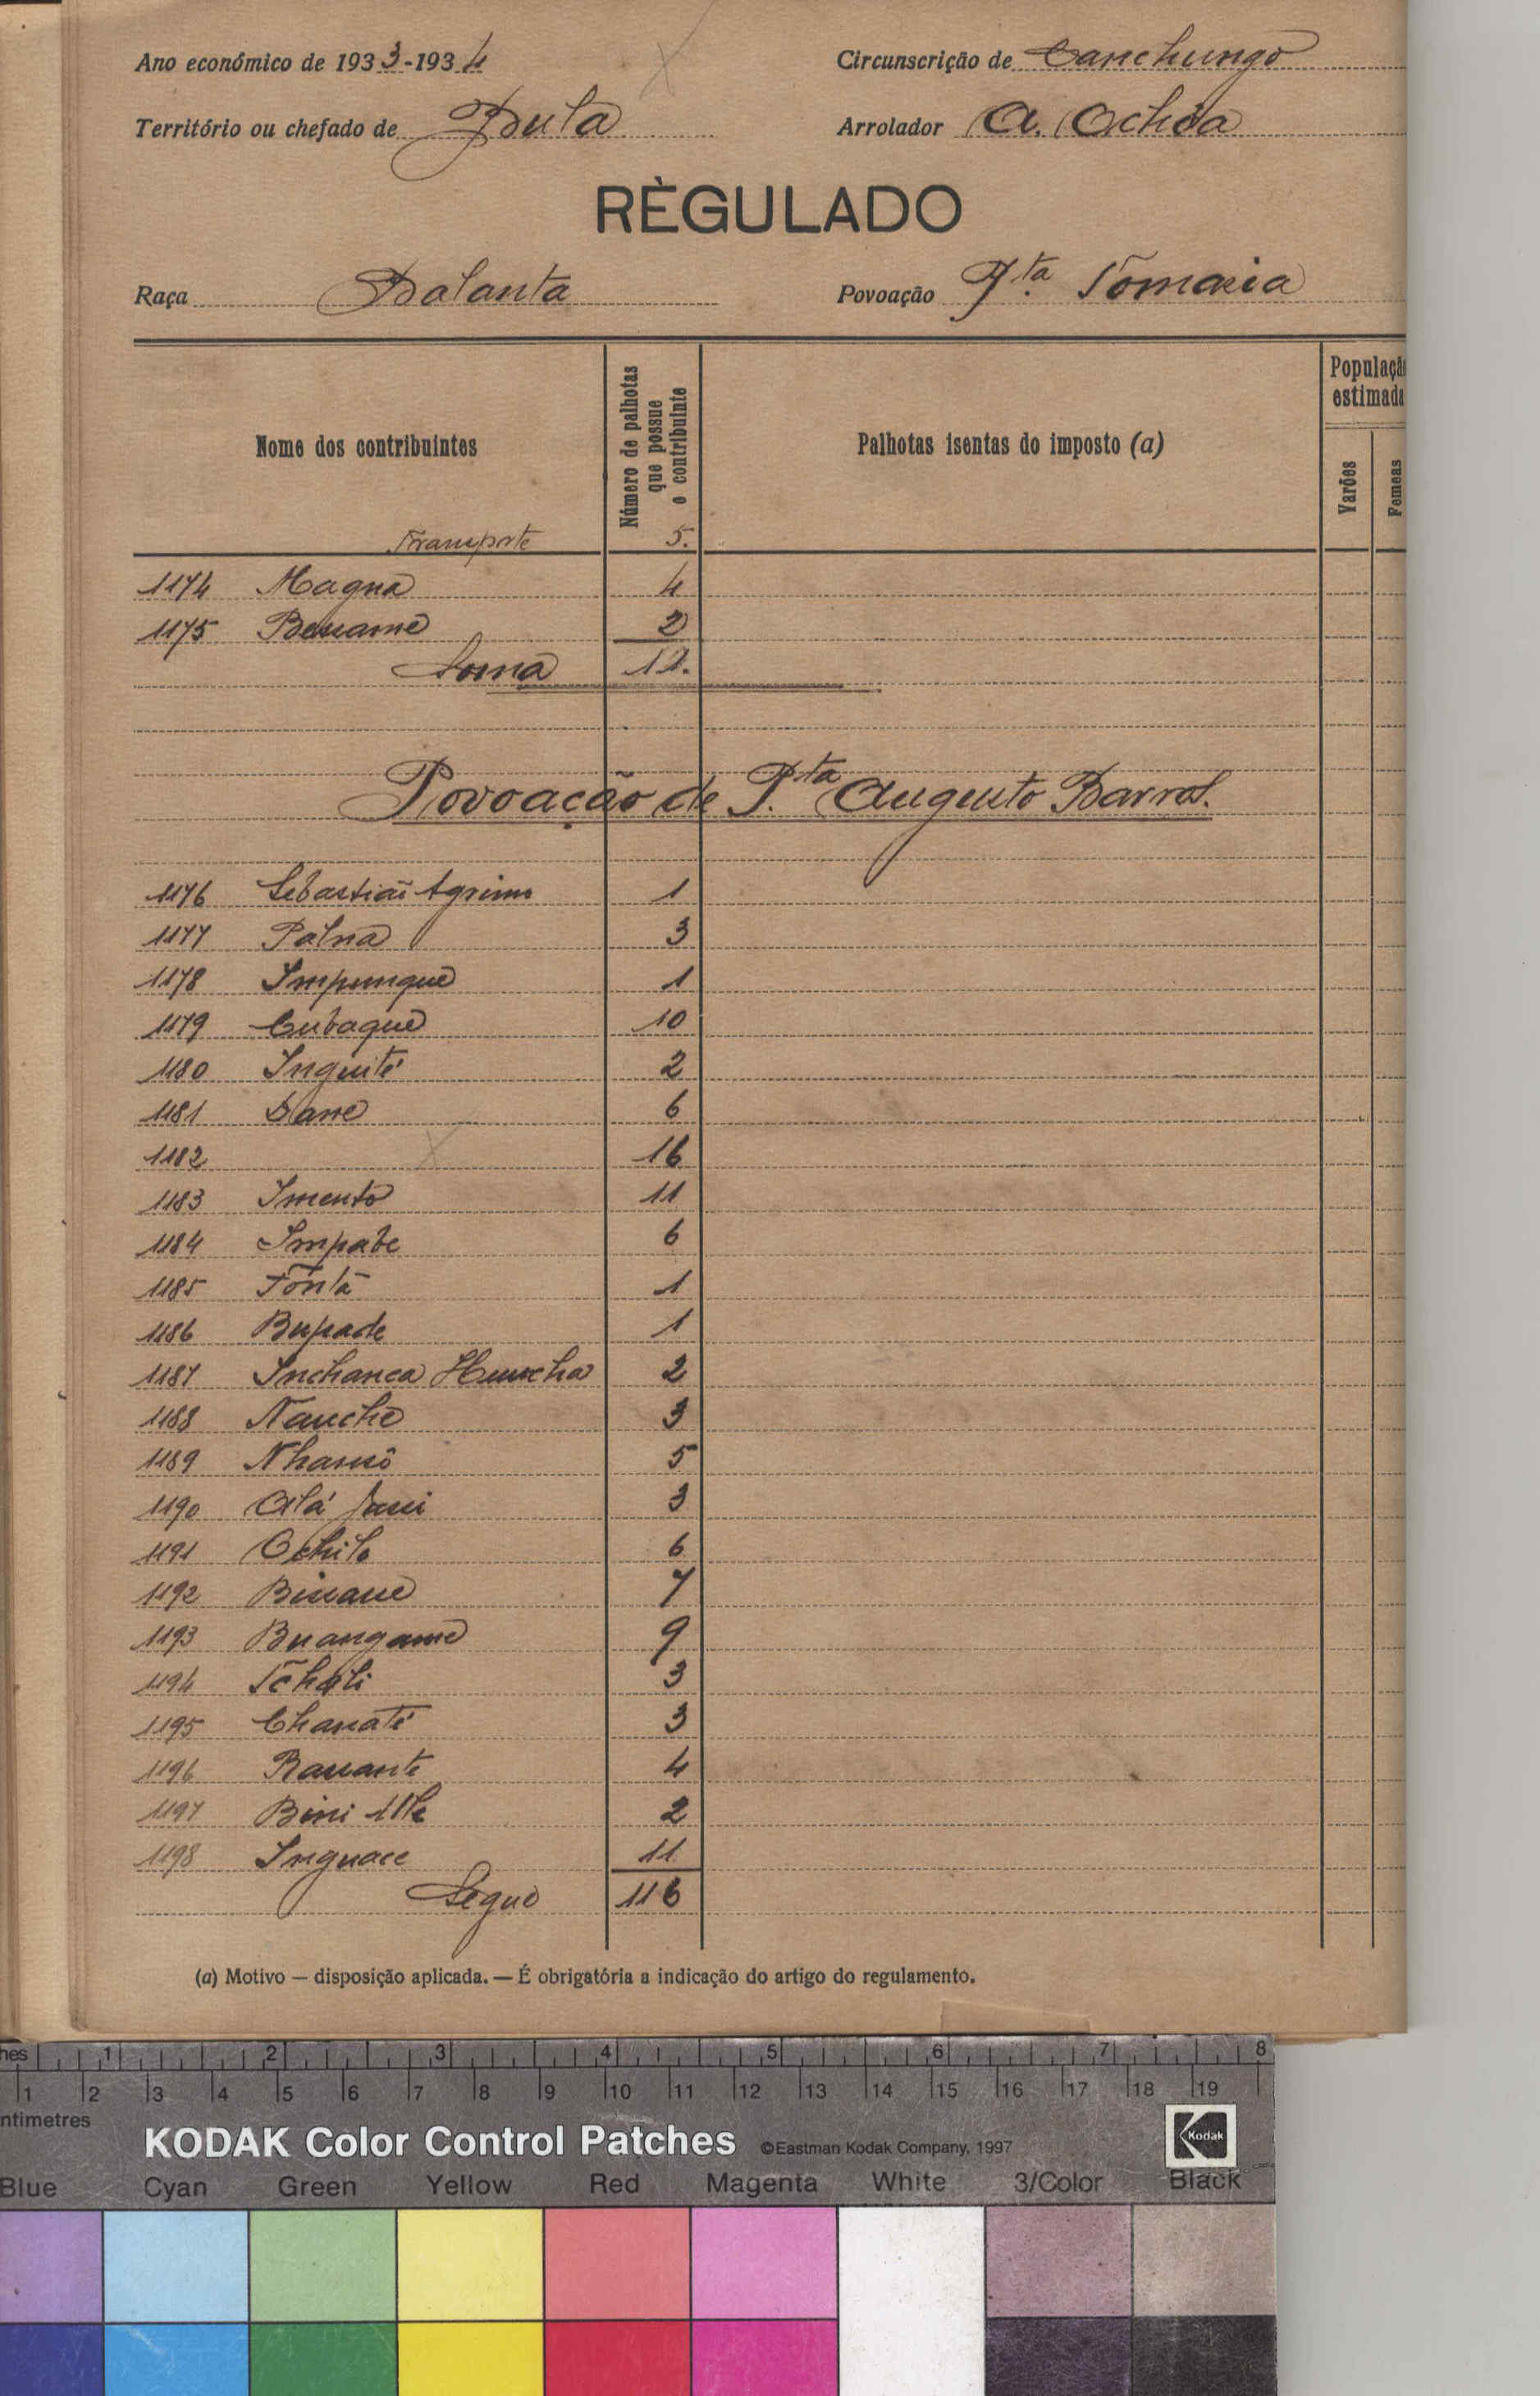 Ano económico de 1933-1934
Circunscrição de Canchungo
Território ou chefado de Bula
Arrolador A. Ochôa
RÈGULADO
Raça Balanta
Povoação Pta Tomasia
Nome dos contribuintes
Número de palhotas que possue o contribuinte
Palhotas isentas do imposto (a)
Populaçã
estimada
Varões
Femeas
Transporte 5.
1174 Magna 4
1175 2
Soma 11.
Povoação de P.ta Augusto Barros.
1176 Sebastião 1
1177 Palna 3
1178 Impungue 1
1179 Cubaque 10
1180 Inquité 2
1181 Dane 6
1182 16
1183 Imento 11
1184 Impabe 6
1185 Fontã 1
1186 Bupade 1
1187 Inchanca 2
1188 Nanche 3
1189 5
1190 Alá 3
1191 Ochilo 6
1192 7
1193 Buangame 9
1194 Tchali 3
1195 3
1196 4
1197 Bini 2
1198 Inguace 11
Segue 116
(a) Motivo — disposição aplicada. — É obrigatória a indicação do artigo do regulamento.
hes 1 2 3 4 5 6 7 8
1 2 3 4 5 6 7 8 9 10 11 12 13 14 15 16 17 18 19
ntimetres
KODAK Color Control Patches ©Eastman Kodak Company, 1997 Kodak
Blue Cyan Green Yellow Red Magenta White 3/Color Black